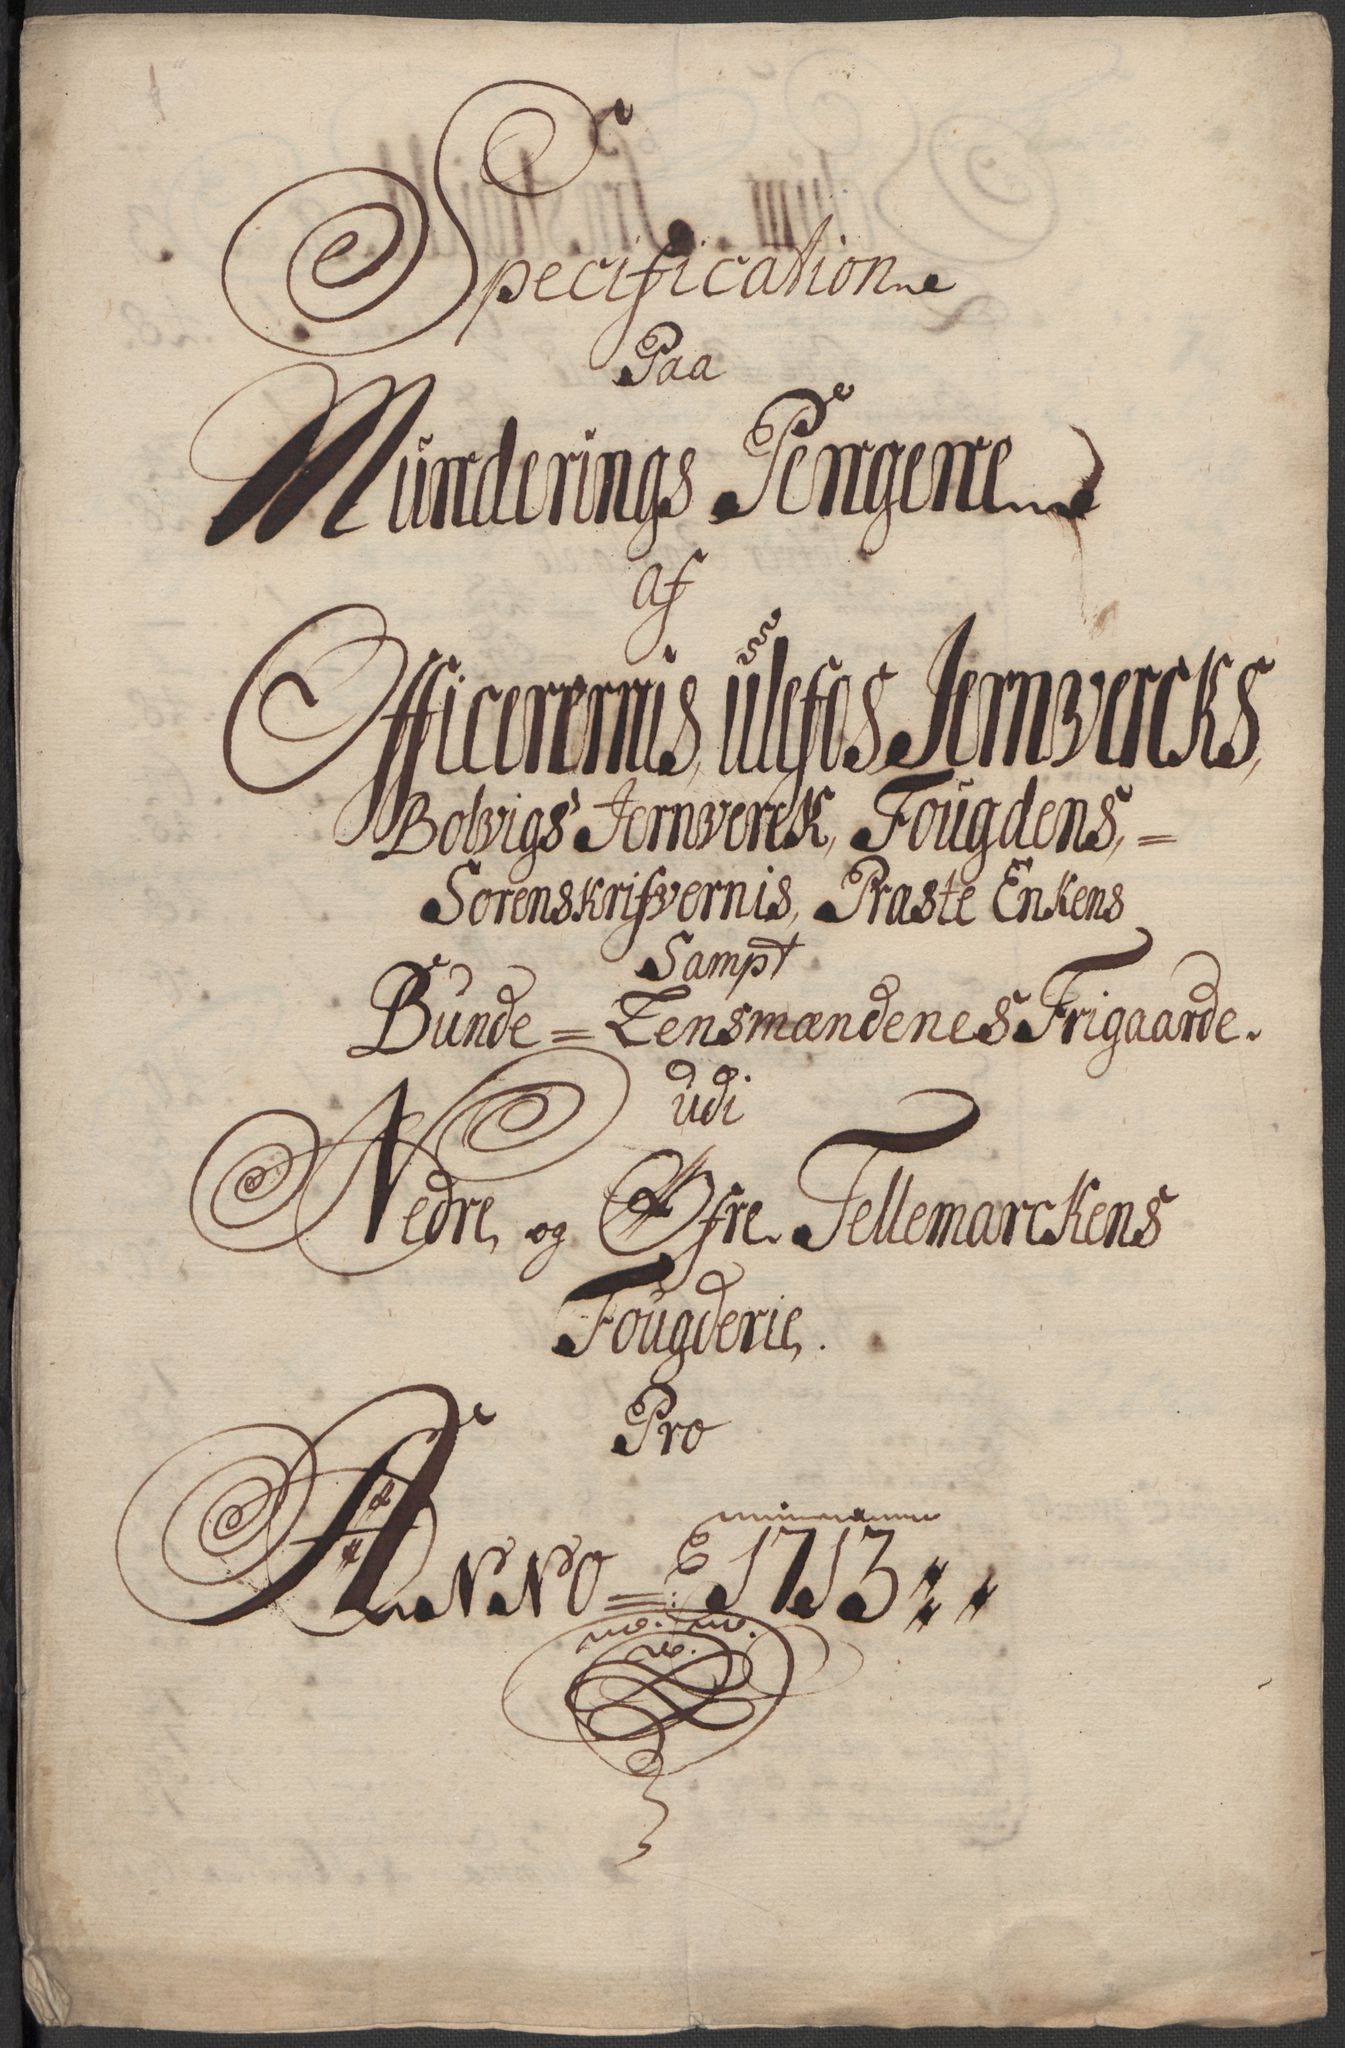 Specification
Paa
Münderings Pengene
af
Officerernis, ülefos Jernvercks,
Bolvigs Jernverck, Foügdens, =
Sorenskrifvernis, Præste Enkens
Sampt
Bünde = Lensmændenes Frigaarde.
üdi
Nedre, og Øfre. Tellemarckens
Foügderie.
Pro
ANNO = 1713